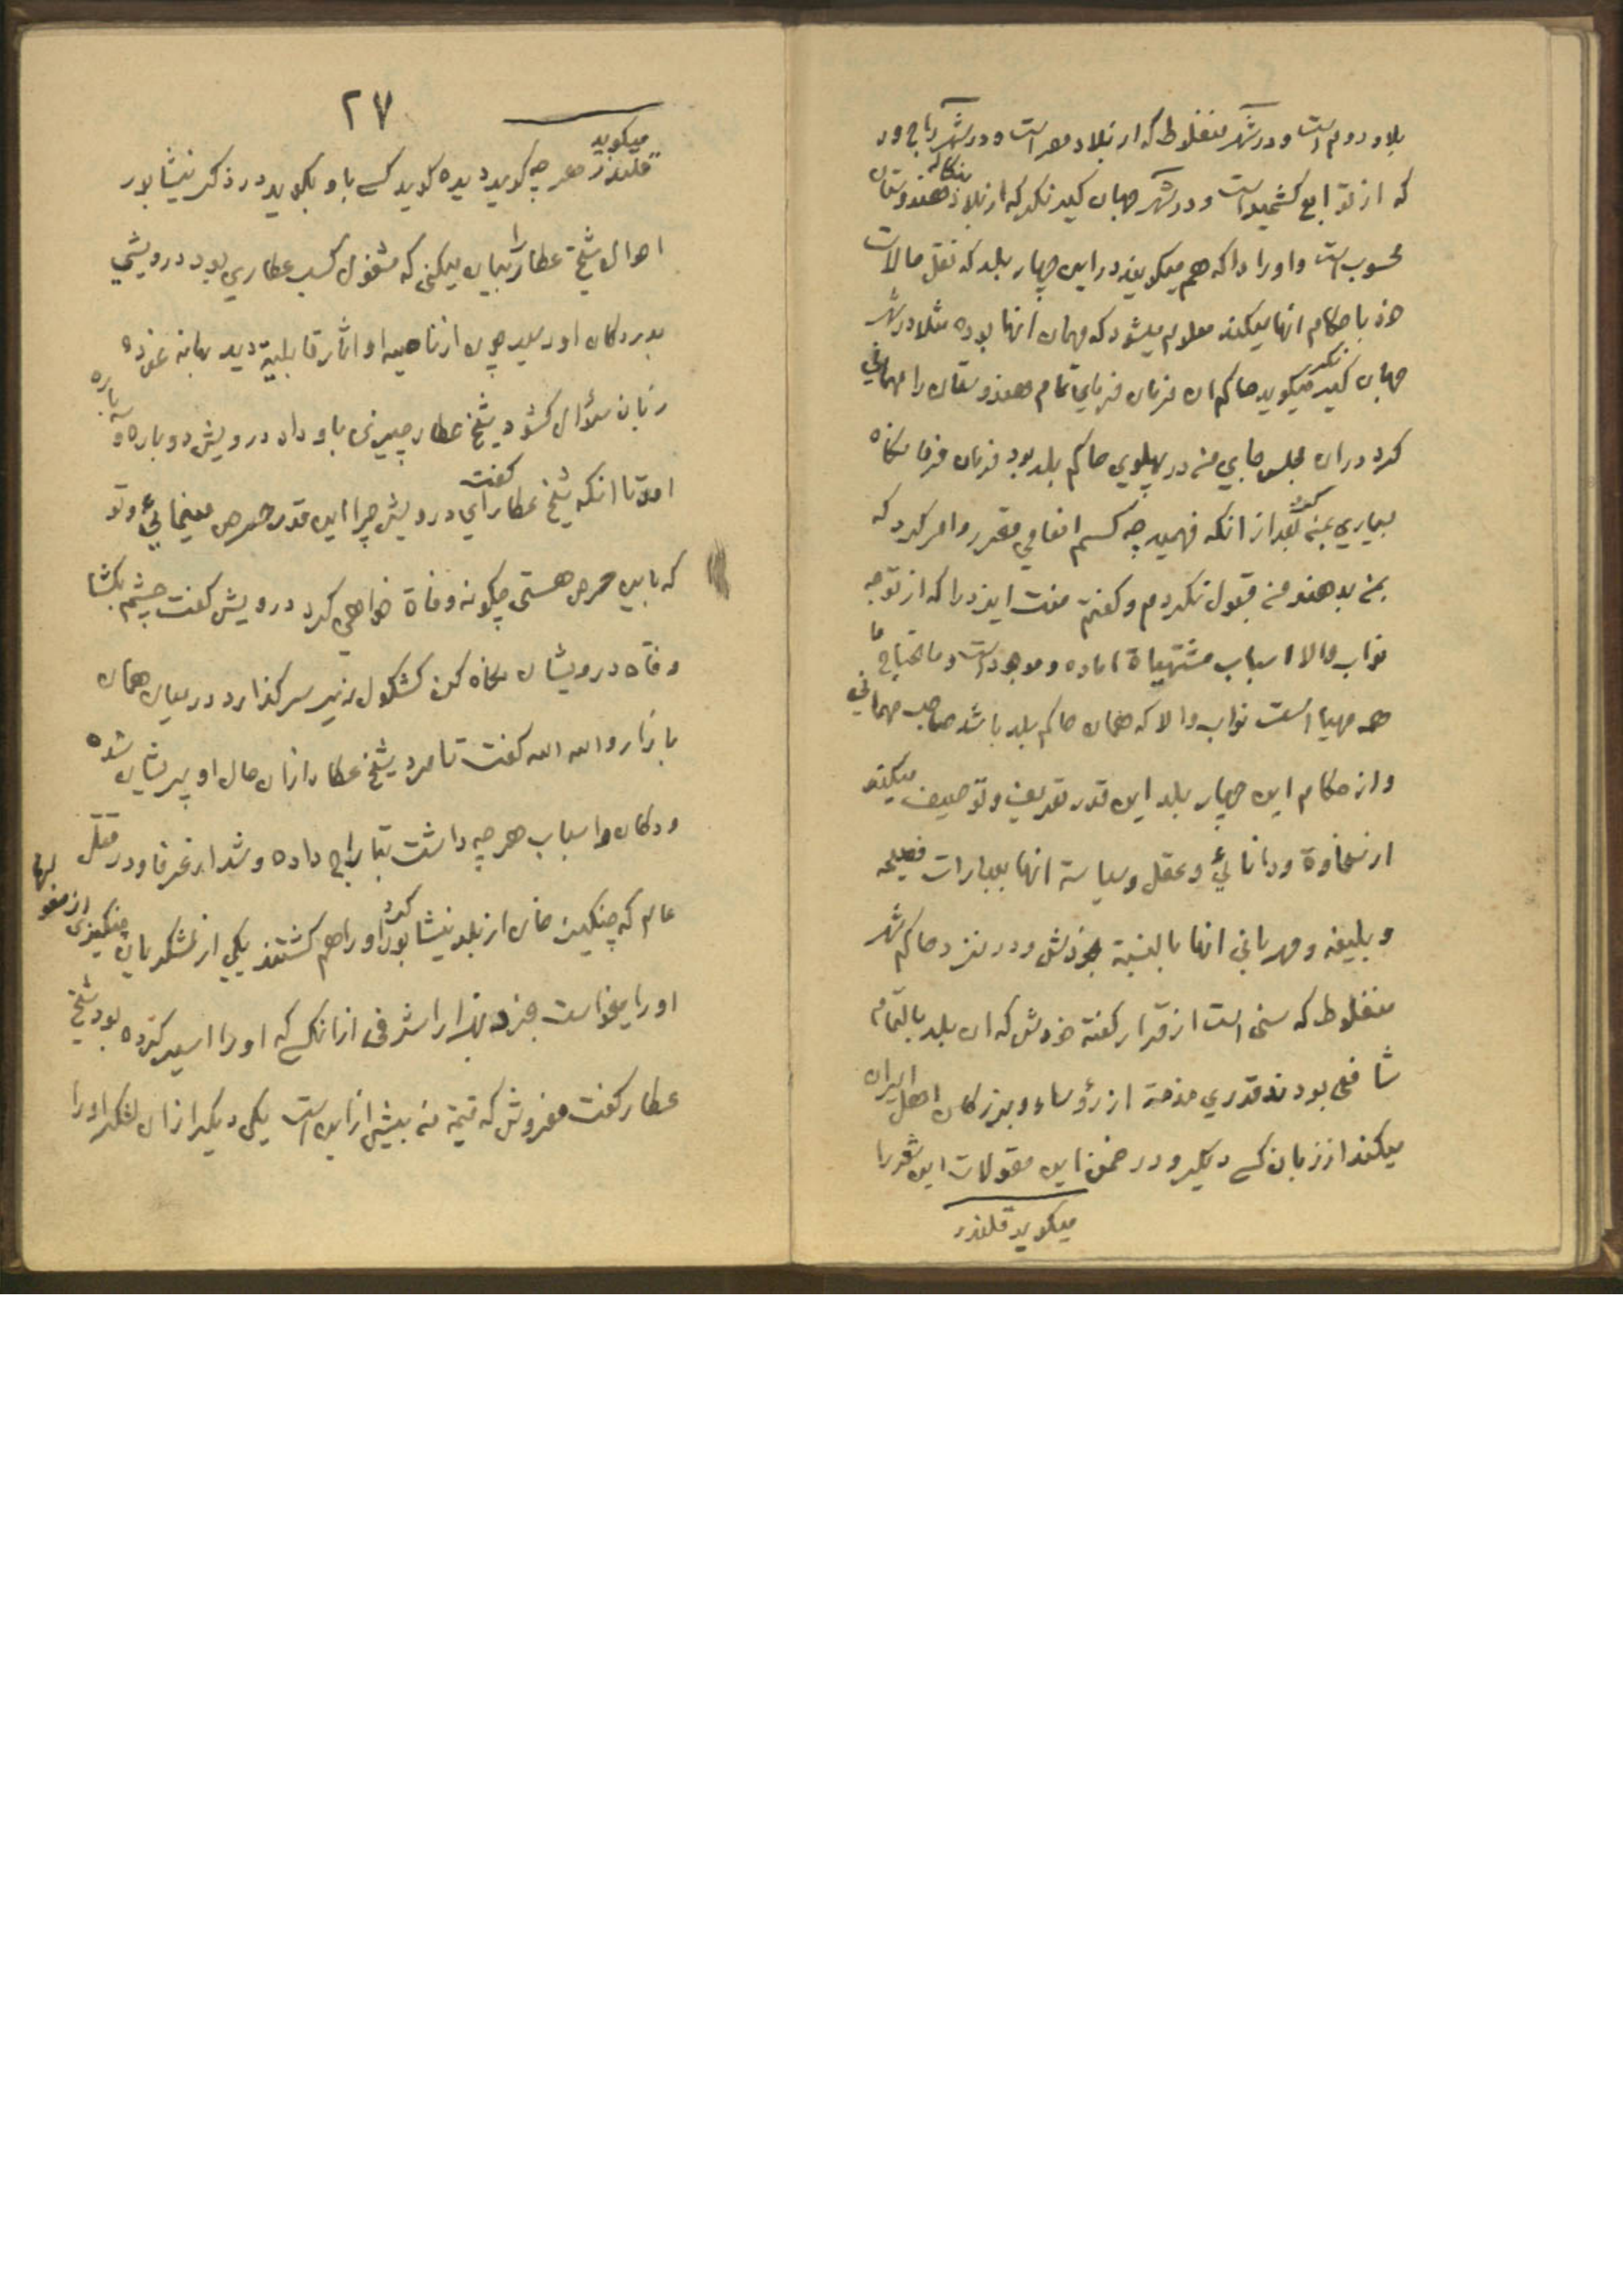 بلاد روم است و در شهر منفلوط که از بلاد مصر است و در شهر
که از توابع کشمیر است و در شهر جهان کیر نکر که از بلاد بنکاله هندوستان
محسوب است و اورا داکه هم میکویند در این چهار بلد که نقل حالات
خود با حکام انها میکند معلوم میشود که مهمان انها بوده مثلا در شهر
جهان کیر نکر میکوید حاکم ان فرمان فرمای تمام هندوستان را مهمانی
کرد در ان مجلس جای من در پهلوی حاکم بلد بود فرمان فرما نکاه
بسیاری بمن کرد بعد از انکه فهمید چه کسم انعامی مقرر و امر کرد که
بمن بدهند من قبول نکردم و کفتم منت ایزد را که از توجه
نواب والا اسباب مشتهیاة اماده و موجود است و ما یحتاج ما
همه مهیا است نواب والا که همان حاکم بلد باشد صاحب مهمانی
و از حکام این چهار بلد این قدر تعریف و توصیف میکند
از سخاوة و دانائی و عقل و سیاسة انها بعبارات فصیحه
و بلیغه و مهربانی انها بالنسبة بخودش و در نزد حاکم شهر
منفلوط که سنی است از قرار کفتۀ خودش که ان بلد بالتمام
شافعی بودند قدری مذمة از رؤساء و بزرکان اهل ایران
میکند از زبان کسی دیکر و در ضمن این مقولات این شعر را
میکوید قلندر
۲۷
میکوید
قلندر هر چه کوید دیده کوید کسی باو بکوید در ذکر نیشابور
احوال شیخ عطار را بیان میکنی که مشغول کسب عطاری بود درویشی
بدر دکان او رسید چون از ناصیه او اثار قابلیة دید بهانه نموده
زبان سؤال کشود شیخ عطار چیزی باو داد درویش دوباره و سه باره
امد تا انکه شیخ عطار کفت ای درویش چرا این قدر حرص مینمائی و تو
که باین حرص هستی چکونه وفاة خواهی کرد درویش کفت چشم بکشا
وفاه درویشان نکاه کن کشکول زیر سر کذارد در میان همان
بازار و الله الله کفت تا مرد شیخ عطار از ان حال او پریشان شده
و دکان و اسباب هر چه داشت بتاراج داده و شد از عرفا و در قتل
عام که چنکیز خان از بلد نیشابور کرد اورا هم کشتند یکی از لشکریان چنکیزی از مغولها
اورا میخواست بخرد بهزار اشرفی از انکسی که اورا اسیر کرده بود شیخ
عطار کفت مفروش که قیمة من بیش از این است یکی دیکر از ان لشکر اورا